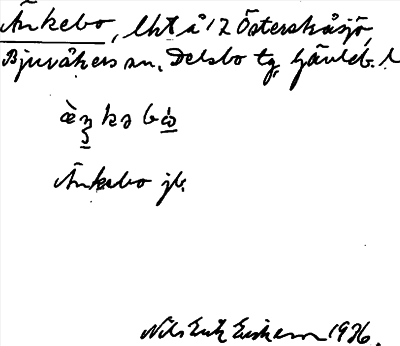 Änkebo, lht å 1² Österskåsjö,
Bjuråkers sn, Delsbo tg, Gävleb. l
Änkebo jb.
Nils Erik Eriksson 1936.